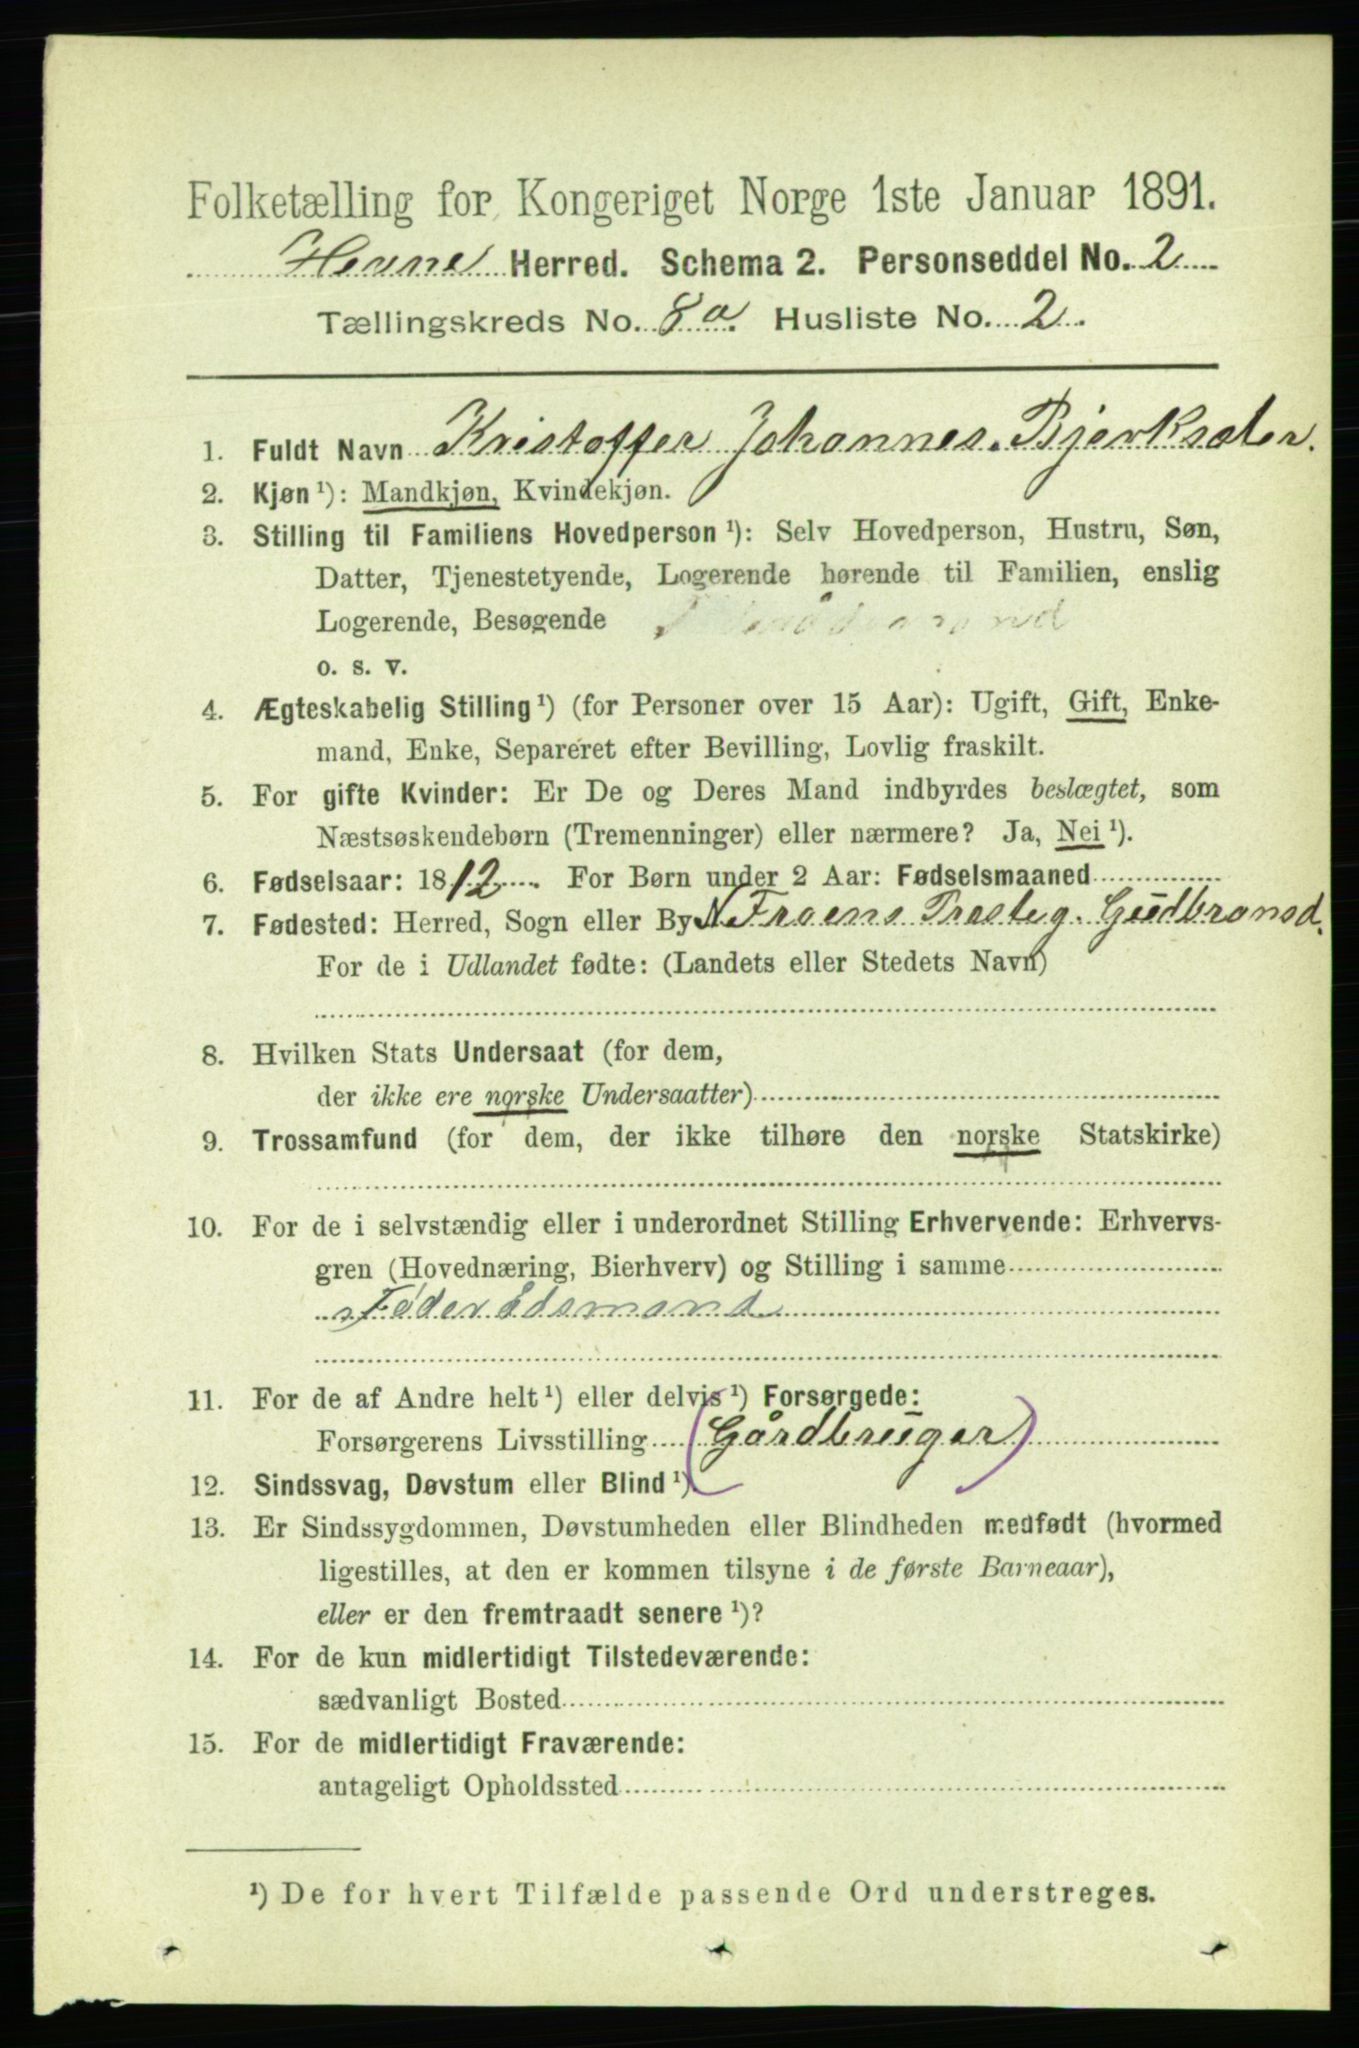 Folketælling for Kongeriget Norge 1ste Januar 1891.
Hevne Herred. Schema 2. Personseddel No. 2
Tællingskreds No. 8a. Husliste No. 2.
1. Fuldt Navn Kristoffer Johannes. Bjerksæter.
2. Kjøn ¹): Mandkjøn, Kvindekjøn.
3. Stilling til Familiens Hovedperson ¹): Selv Hovedperson, Hustru, Søn,
Datter, Tjenestetyende, Logerende hørende til Familien, enslig
Logerende, Besøgende
o. s. v.
4. Ægteskabelig Stilling ¹) (for Personer over 15 Aar): Ugift, Gift, Enke-
mand, Enke, Separeret efter Bevilling, Lovlig fraskilt.
5. For gifte Kvinder: Er De og Deres Mand indbyrdes beslægtet, som
Næstsøskendebørn (Tremenninger) eller nærmere? Ja, Nei ¹).
6. Fødselsaar: 1812. For Børn under 2 Aar: Fødselsmaaned
7. Fødested: Herred, Sogn eller By N. Froens Præsteg. Gudbransd.
For de i Udlandet fødte: (Landets eller Stedets Navn)
8. Hvilken Stats Undersaat (for dem,
der ikke ere norske Undersaatter)
9. Trossamfund (for dem, der ikke tilhøre den norske Statskirke)
10. For de i selvstændig eller i underordnet Stilling Erhvervende: Erhvervs-
gren (Hovednæring, Bierhverv) og Stilling i samme
Føderådsmand
11. For de af Andre helt ¹) eller delvis ¹) Forsørgede:
Forsørgerens Livsstilling (Gårdbruger)
12. Sindssvag, Døvstum eller Blind ¹)
13. Er Sindssygdommen, Døvstumheden eller Blindheden medfødt (hvormed
ligestilles, at den er kommen tilsyne i de første Barneaar),
eller er den fremtraadt senere ¹)?
14. For de kun midlertidigt Tilstedeværende:
sædvanligt Bosted
15. For de midlertidigt Fraværende:
antageligt Opholdssted
¹) De for hvert Tilfælde passende Ord understreges.